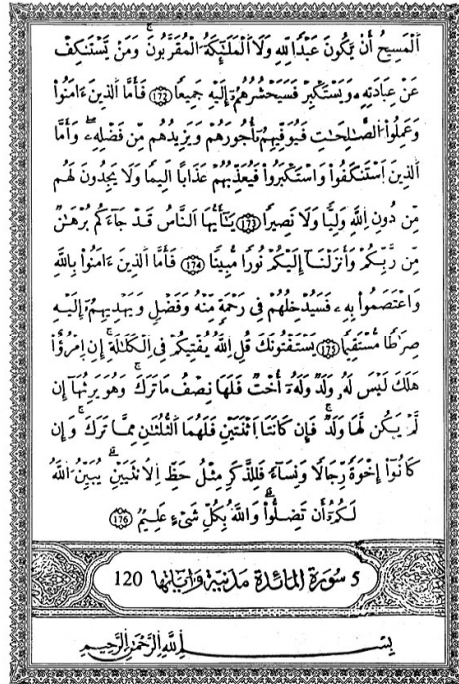 اَ۬لْمَسِيحُ أَنْ يَّكُونَ عَبْدًا لِّلهِ وَلَا اَ۬لْمَلَٰٓئِكَةُ اُ۬لْمُقَرَّبُونَ وَمَنْ يَّسْتَنكِفْ
عَنْ عِبَادَتِهِۦ وَيَسْتَكْبِرْ فَسَيَحْشُرُهُمُۥٓ إِلَيْهِ جَمِيعًا 172 فَأَمَّا اَ۬لذِينَ ءَامَنُوا۟
وَعَمِلُوا۟ اُ۬لصَّٰلِحَٰتِ فَيُوَفِّيهِمُۥٓ أُجُورَهُمْ وَيَزِيدُهُم مِّن فَضْلِهِۦ وَأَمَّا
اَ۬لذِينَ اَ۪سْتَنكَفُوا۟ وَاسْتَكْبَرُوا۟ فَيُعَذِّبُهُمْ عَذَابًا اَلِيمًا وَلَا يَجِدُونَ لَهُم
مِّن دُونِ اِ۬للَّهِ وَلِيًّا وَلَا نَصِيرًا 173 يَٰٓأَيُّهَا اَ۬لنَّاسُ قَدْ جَآءَكُم بُرْهَٰنٌ
مِّن رَّبِّكُمْ وَأَنزَلْنَآ إِلَيْكُمْ نُورًا مُّبِينًا 174 فَأَمَّا اَ۬لذِينَ ءَامَنُوا۟ بِاللَّهِ
وَاعْتَصَمُوا۟ بِهِۦ فَسَيُدْخِلُهُمْ فِى رَحْمَةٍ مِّنْهُ وَفَضْلٍ وَيَهْدِيهِمُۥٓ إِلَيْهِ
صِرَٰطًا مُّسْتَقِيمًا 175 يَسْتَفْتُونَكَ قُلِ اِ۬للَّهُ يُفْتِيكُمْ فِى اِ۬لْكَلَٰلَةِ إِنِ اِ۪مْرُؤٌا۟
هَلَكَ لَيْسَ لَهُۥ وَلَدٌ وَلَهُۥٓ أُخْتٌ فَلَهَا نِصْفُ مَا تَرَكَ وَهُوَ يَرِثُهَآ إِن
لَّمْ يَكُن لَّهَا وَلَدٌ فَإِن كَانَتَا اَ۪ثْنَتَيْنِ فَلَهُمَا اَ۬لثُّلُثَٰنِ مِمَّا تَرَكَ وَإِن
كَانُوٓا۟ إِخْوَةً رِّجَالًا وَنِسَآءً فَلِلذَّكَرِ مِثْلُ حَظِّ اِ۬لُانثَيَيْنِ يُبَيِّنُ اُ۬للَّهُ
لَكُمُۥٓ أَن تَضِلُّوا۟ وَاللَّهُ بِكُلِّ شَىْءٍ عَلِيمٌ 176
5 سورة المائدة مدنية وآياتها 120
بِسْمِ اِ۬للَّهِ اِ۬لرَّحْمَٰنِ اِ۬لرَّحِيمِ